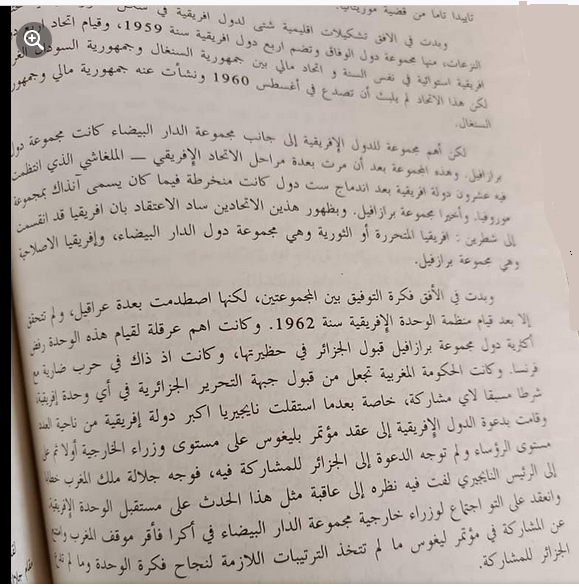 تأييدا تاما من قضية موريتانيا.
وبدت في الأفق تشكيلات اقليمية شتى لدول افريقية في
النزعات، منها مجموعة دول الوفاق وتضم اربع دول افريقية سنة 1959، وقيام اتحاد
افريقية استوائية في نفس السنة و اتحاد مالي بين جمهورية السنغال وجمهورية السودان
لكن هذا الاتحاد لم يلبث أن تصدع في أغسطس 1960 ونشأت عنه جمهورية مالي
السنغال.
لكن أهم مجموعة للدول الإفريقية إلى جانب مجموعة الدار البيضاء كانت مجموعة دول
برازافيل. وهذه المجموعة بعد أن مرت بعدة مراحل الاتحاد الإفريقي — الملغاشي الذي انتظمت
فيه عشرون دولة افريقية بعد اندماج ست دول كانت منخرطة فيما كان يسمى آنذاك بمجموعة
موروفيا. وأخيرا مجموعة برازافيل. وبظهور هذين الاتحادين ساد الاعتقاد بان افريقيا قد انقسمت
إلى شطرين : افريقيا المتحررة أو الثورية وهي مجموعة دول الدار البيضاء، وإفريقيا الاصلاحية
وهي مجموعة برازفيل.
وبدت في الأفق فكرة التوفيق بين المجموعتين، لكنها اصطدمت بعدة عراقيل، ولم تتحقق
إلا بعد قيام منظمة الوحدة الإفريقية سنة 1962. وكانت اهم عرقلة لقيام هذه الوحدة رفض
أكثرية دول مجموعة برازافيل قبول الجزائر في حظيرتها، وكانت اذ ذاك في حرب ضارية مع
فرنسا. وكانت الحكومة المغربية تجعل من قبول جبهة التحرير الجزائرية في أي وحدة إفريقية،
شرطا مسبقا لاي مشاركة، خاصة بعدما استقلت نايجيريا اكبر دولة إفريقية من ناحية العدد
وقامت بدعوة الدول الإفريقية إلى عقد مؤتمر بليغوس على مستوى وزراء الخارجية أولا ثم على
مستوى الرؤساء ولم توجه الدعوة إلى الجزائر للمشاركة فيه، فوجه جلالة ملك المغرب خطابا
إلى الرئيس النايجيري لفت فيه نظره إلى عاقبة مثل هذا الحدث على مستقبل الوحدة الإفريقية
وانعقد على التو اجتماع لوزراء خارجية مجموعة الدار البيضاء في أكرا فأقر موقف المغرب وامتنع
عن المشاركة في مؤتمر ليغوس ما لم تتخذ الترتيبات اللازمة لنجاح فكرة الوحدة وما لم
الجزائر للمشاركة.